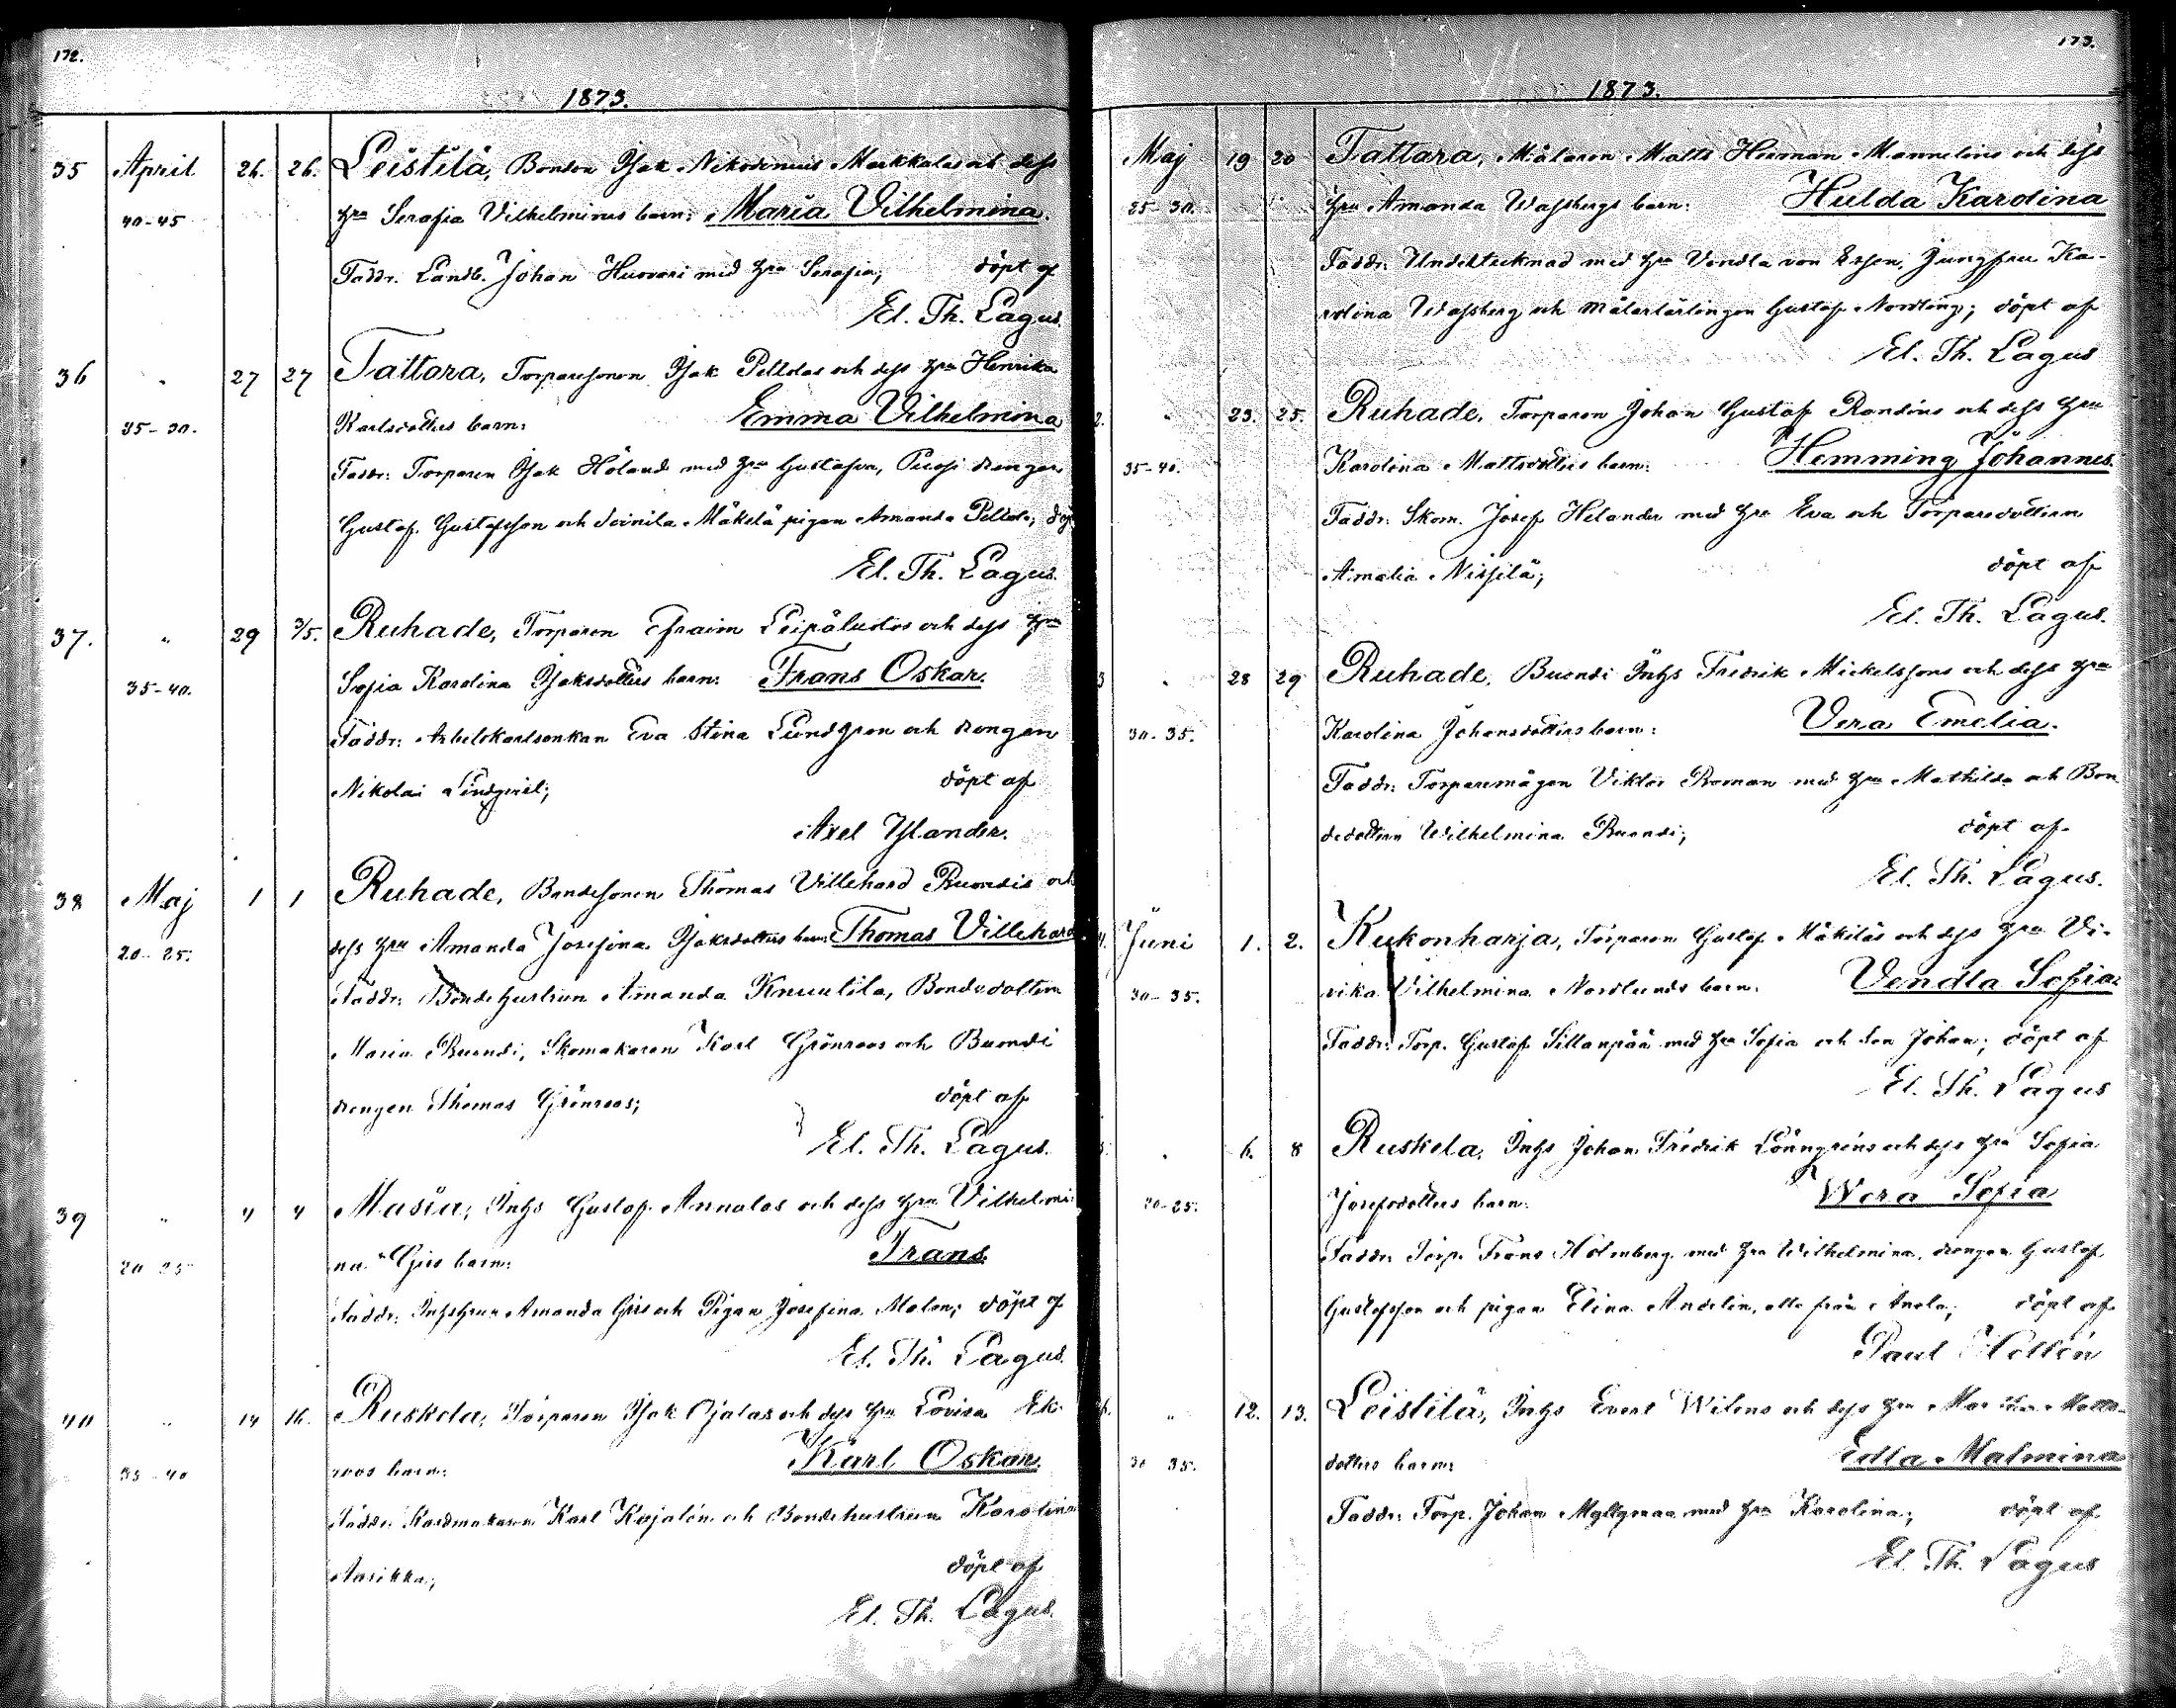 172.
1873.
35 April 26. 26. Leistilä, Bonden Isak Nikodemus Markkulas och dess
40-45 hru Serafia Vilhelminas barn: Maria Vilhelmina.
Faddr. Landb. Johan Huovari med hru Serafia; döpt af
El. Th. Lagus.
36 " 27 27 Tattara, Torparesonen Isak Peltolas och dess hru Henrika
25-30. Karlsdotters barn: Emma Vilhelmina
Faddr: Torparen Isak Höland med hru Gustafva, drengen
Gustaf Gustafsson och Soinila Mäkelä pigan Amanda Peltola; döpt
El. Th. Lagus.
37. " 29 3/5. Ruhade, Torparen Efraim Leipäluotos och dess hru
35-40. Sofia Karolina Isaksdotters barn: Frans Oskar.
Faddr: Arbetskarlsenkan Eva Stina Lundgren och drengen
Nikolai Lindqvist; döpt af
Axel Yslander.
38 Maj 1 1 Ruhade, Bondesonen Thomas Villehard Buondis och
20-25. dess hru Amanda Josefina Isaksdotters barn: Thomas Villehard
Faddr: Bondehustrun Amanda Knuutila, Bondedottern
Maria Buondi, Skomakaren Karl Grönroos och Buondi
drengen Thomas Grönroos; döpt af
El. Th. Lagus.
39 " 4 4 Masia, Inhs Gustaf Annalas och dess hru Vilhelmi-
20-25 na Girs barn: Frans.
Faddr: Inhshrun Amanda Girs och Pigan Josefina Malen; döpt af
El. Th. Lagus.
40 " 14 16. Ruskela, Torparen Isak Ojalas och dess hru Lovisa Ek-
35-40 roos barn: Karl Oskar.
Faddr: Kardmakaren Karl Kajalén och Bondehustrun Karolina
Aarikka; döpt af
El. Th. Lagus.
173.
1873.
Maj 19 20 Tattara, Målaren Matts Herman Mannelins och dess
25-30. hru Amanda Wassbergs barn: Hulda Karolina
Faddr: Undertecknad med hru Vendla von Essen, Jungfru Ka-
rolina Wassberg och målarlärlingen Gustaf Nordling; döpt af
El. Th. Lagus
2. " 23. 25. Ruhade, Torparen Johan Gustaf Randins och dess hru
35-40. Karolina Mattsdotters barn: Hemming Johannes.
Faddr: Skom. Josef Helander med hru Eva och Torparedottern
Amalia Nissilä; döpt af
El. Th. Lagus.
3 " 28 29 Ruhade, Buondi Inhs Fredrik Mickelssons och dess hru
30-35. Karolina Johansdotters barn: Vera Emelia.
Faddr: Torparemågen Viktor Roman med hru Mathilda och Bon-
dedottern Wilhelmina Buondi; döpt af
El. Th. Lagus.
4. Juni 1. 2. Kukonharja, Torparen Gustaf Mäkiläs och dess hru Vi-
30-35. vika Vilhelmina Nordlunds barn: Vendla Sofia.
Faddr: Torp. Gustaf Sillanpää med hru Sofia och son Johan; döpt af
El. Th. Lagus
5. " 6. 8 Ruskela, Inhs Johan Fredrik Lönngrens och dess hru Sofia
20-25. Josefsdotters barn: Wera Sofia
Faddr: Torp. Frans Holmberg med hru Wilhelmina, drengen Gustaf
Gustafsson och pigan Elina Andelin, alla från Anola; döpt af
Paul Hollén
6. " 12. 13. Leistilä, Inhs Evert Wilens och dess hru Matts-
30-35. dotters barn: Edla Malmina
Faddr: Torp. Johan Myllymaa med hru Karolina; döpt af
El. Th. Lagus